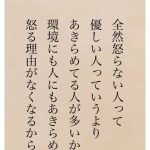 全然怒らない人って
優しい人っていうより
あきらめてる人が多いか
環境にも人にもあきらめ
怒る理由がなくなるから